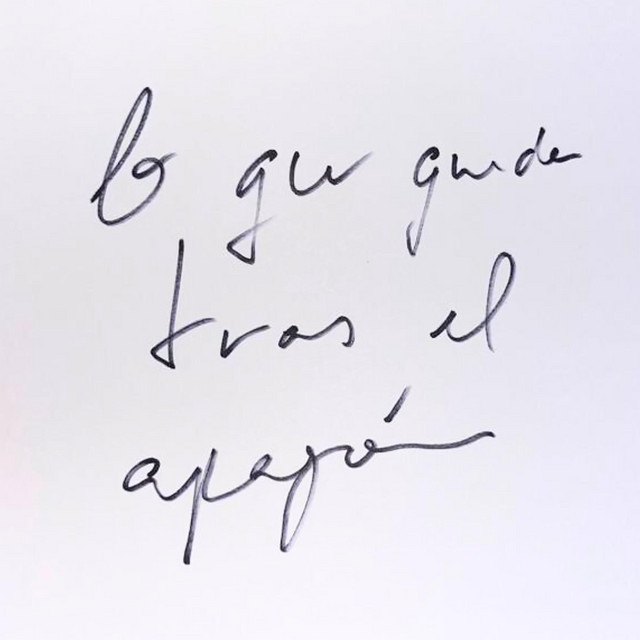 lo que queda
tras el
apagón